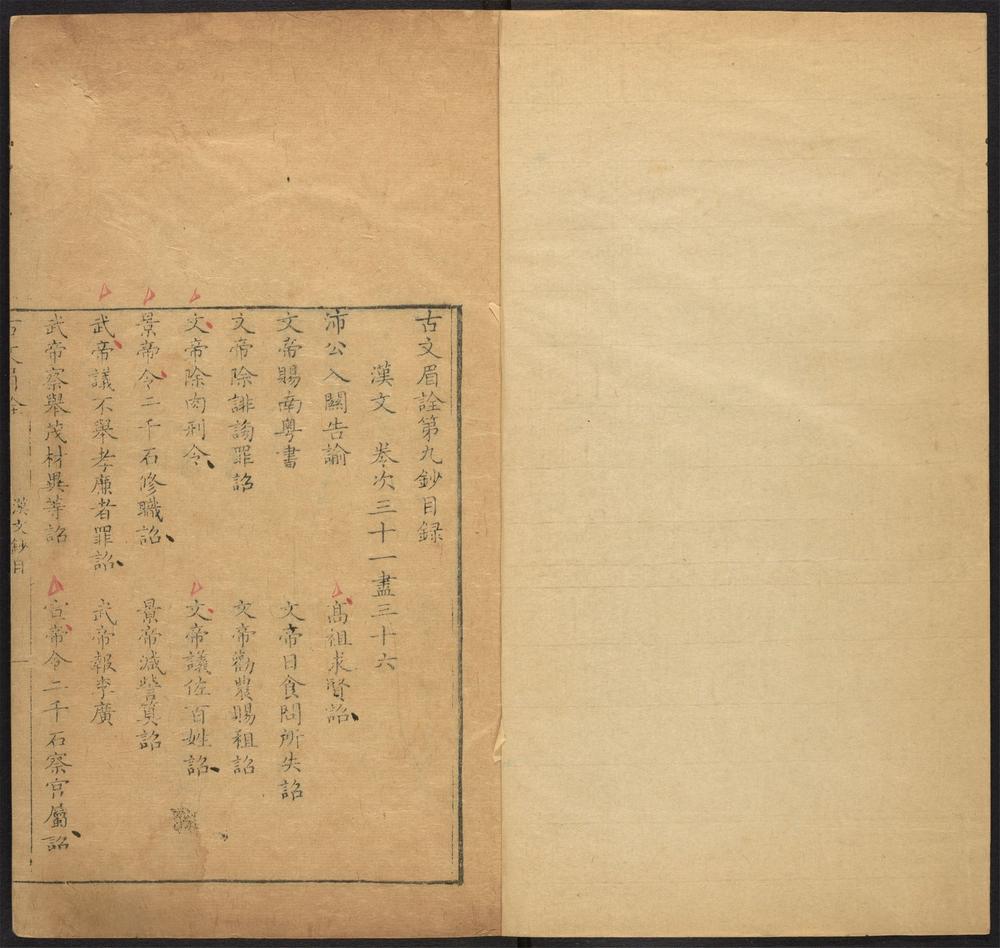 古文眉詮第九鈔目録
漢文　卷次三十一盡三十六
沛公入關告諭　高祖求賢詔
文帝賜南粤書　文帝日食問所失詔
文帝除誹謗罪詔　文帝勸農賜租詔
文帝除肉刑令　文帝議佐百姓詔
景帝令二千石修職詔　景帝減訾算詔
武帝議不舉孝廉者罪詔　武帝報李廣
武帝察舉茂材異等詔　宣帝令二千石察官屬詔
漢文鈔目